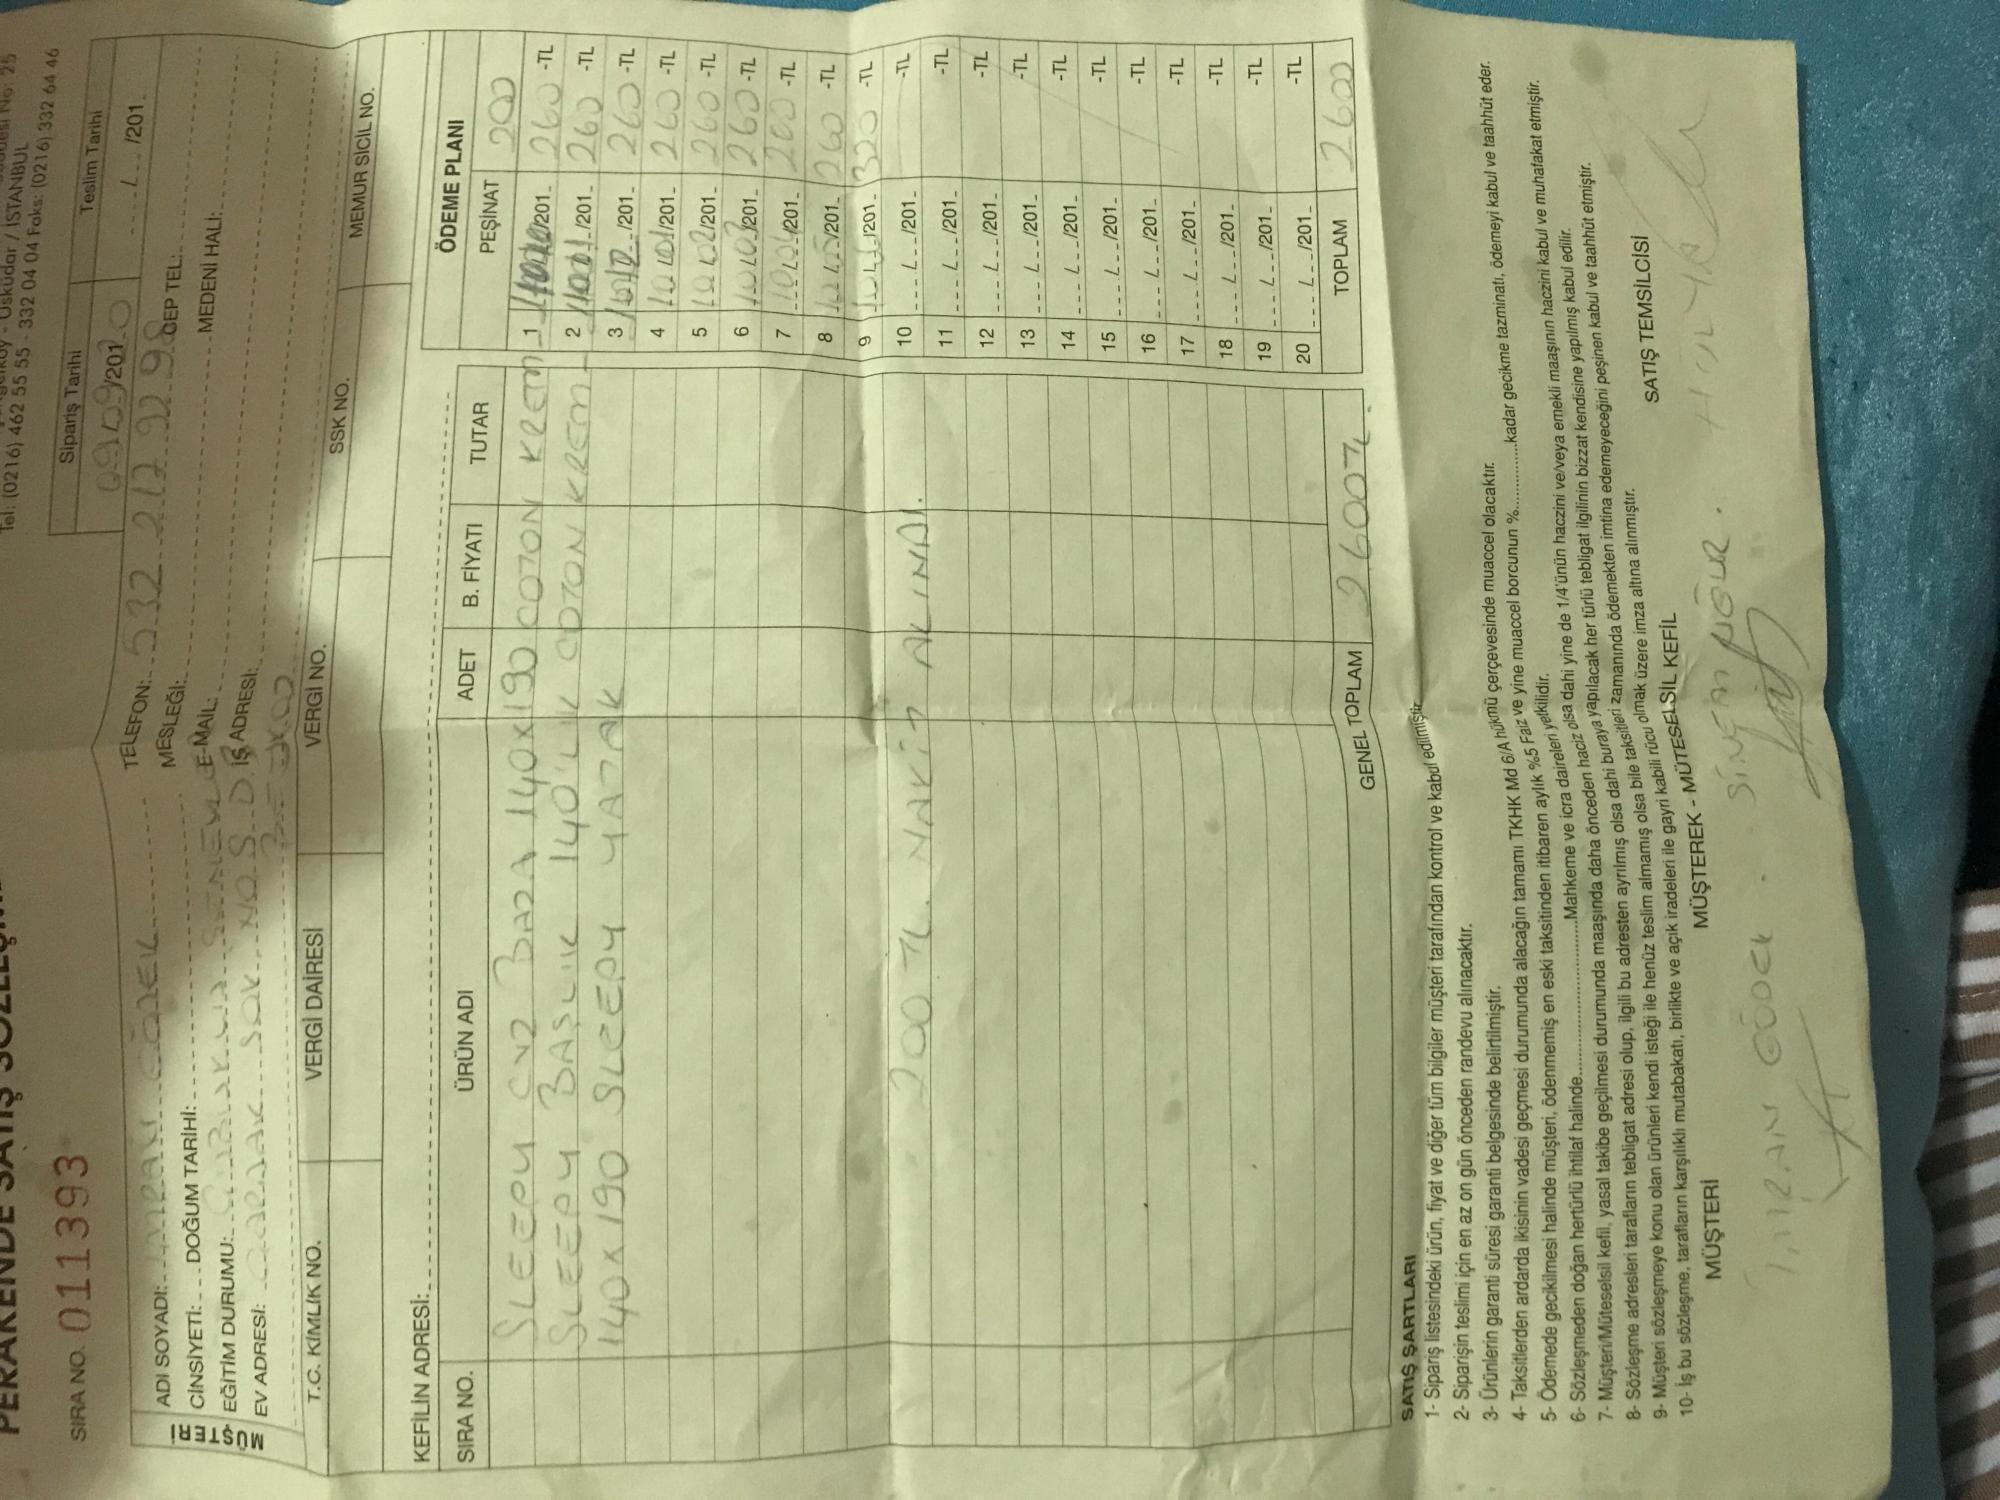 PERAKENDE SATIŞ
SIRA NO. 011393
Üsküdar / İSTANBUL
Tel: (0216) 462 55 55 - 332 04 04 Faks: (0216) 332 64 46
Sipariş Tarihi
Teslim Tarihi
/201
ADI SOYADI:
TELEFON: 532 217 92 98
CEP TEL:
CİNSİYETİ: DOĞUM TARİHİ:
MESLEĞİ:
MEDENİ HALİ:
EĞİTİM DURUMU:
E-MAİL:
EV ADRESİ:
İŞ ADRESİ:
MÜŞTERİ
T.C. KİMLİK NO.
VERGİ DAİRESİ
VERGİ NO.
SSK NO.
MEMUR SİCİL NO.
KEFİLİN ADRESİ:
SIRA NO.
ÜRÜN ADI
ADET
B. FİYATI
TUTAR
SLEEPY BAZA 140X190 COTON KREM
SLEEPY BAŞLIK 140'LIK COTON KREM
140X190 SLEEPY YATAK
200 TL. NAKİT ALINDI.
GENEL TOPLAM 2600TL.
ÖDEME PLANI
PEŞİNAT 200
1 /201 260 -TL
2 /201 260 -TL
3 /201 260 -TL
4 10/01/201 260 -TL
5 10/02/201 260 -TL
6 10/03/201 260 -TL
7 /201 200 -TL
8 /201 260 -TL
9 /201 320 -TL
10 /201 -TL
11 /201 -TL
12 /201 -TL
13 /201 -TL
14 /201 -TL
15 /201 -TL
16 /201 -TL
17 /201 -TL
18 /201 -TL
19 /201 -TL
20 /201 -TL
TOPLAM 2600
SATIŞ ŞARTLARI
1- Sipariş listesindeki ürün, fiyat ve diğer tüm bilgiler müşteri tarafından kontrol ve kabul edilmiştir.
2- Siparişin teslimi için en az on gün önceden randevu alınacaktır.
3- Ürünlerin garanti süresi garanti belgesinde belirtilmiştir.
4- Taksitlerden ardarda ikisinin vadesi geçmesi durumunda alacağın tamamı TKHK Md 6/A hükmü çerçevesinde muaccel olacaktır.
5- Ödemede gecikilmesi halinde müşteri, ödenmemiş en eski taksitinden itibaren aylık %5 Faiz ve yine muaccel borcunun %..............kadar gecikme tazminatı, ödemeyi kabul ve taahhüt eder.
6- Sözleşmeden doğan hertürlü ihtilaf halinde..............................Mahkeme ve icra daireleri yetkilidir.
7- Müşteri/Müteselsil kefil, yasal takibe geçilmesi durumunda maaşında daha önceden haciz olsa dahi yine de 1/4'ünün haczini ve/veya emekli maaşının haczini kabul ve muhafakat etmiştir.
8- Sözleşme adresleri tarafların tebligat adresi olup, ilgili bu adresten ayrılmış olsa dahi buraya yapılacak her türlü tebligat ilgilinin bizzat kendisine yapılmış kabul edilir.
9- Müşteri sözleşmeye konu olan ürünleri kendi isteği ile henüz teslim almamış olsa bile taksitleri zamanında ödemekten imtina edemeyeceğini peşinen kabul ve taahhüt etmiştir.
10- İş bu sözleşme, tarafların karşılıklı mutabakatı, birlikte ve açık iradeleri ile gayri kabili rücu olmak üzere imza altına alınmıştır.
MÜŞTERİ
MÜŞTEREK - MÜTESELSİL KEFİL
SATIŞ TEMSİLCİSİ
SİNEM
HÜLYA